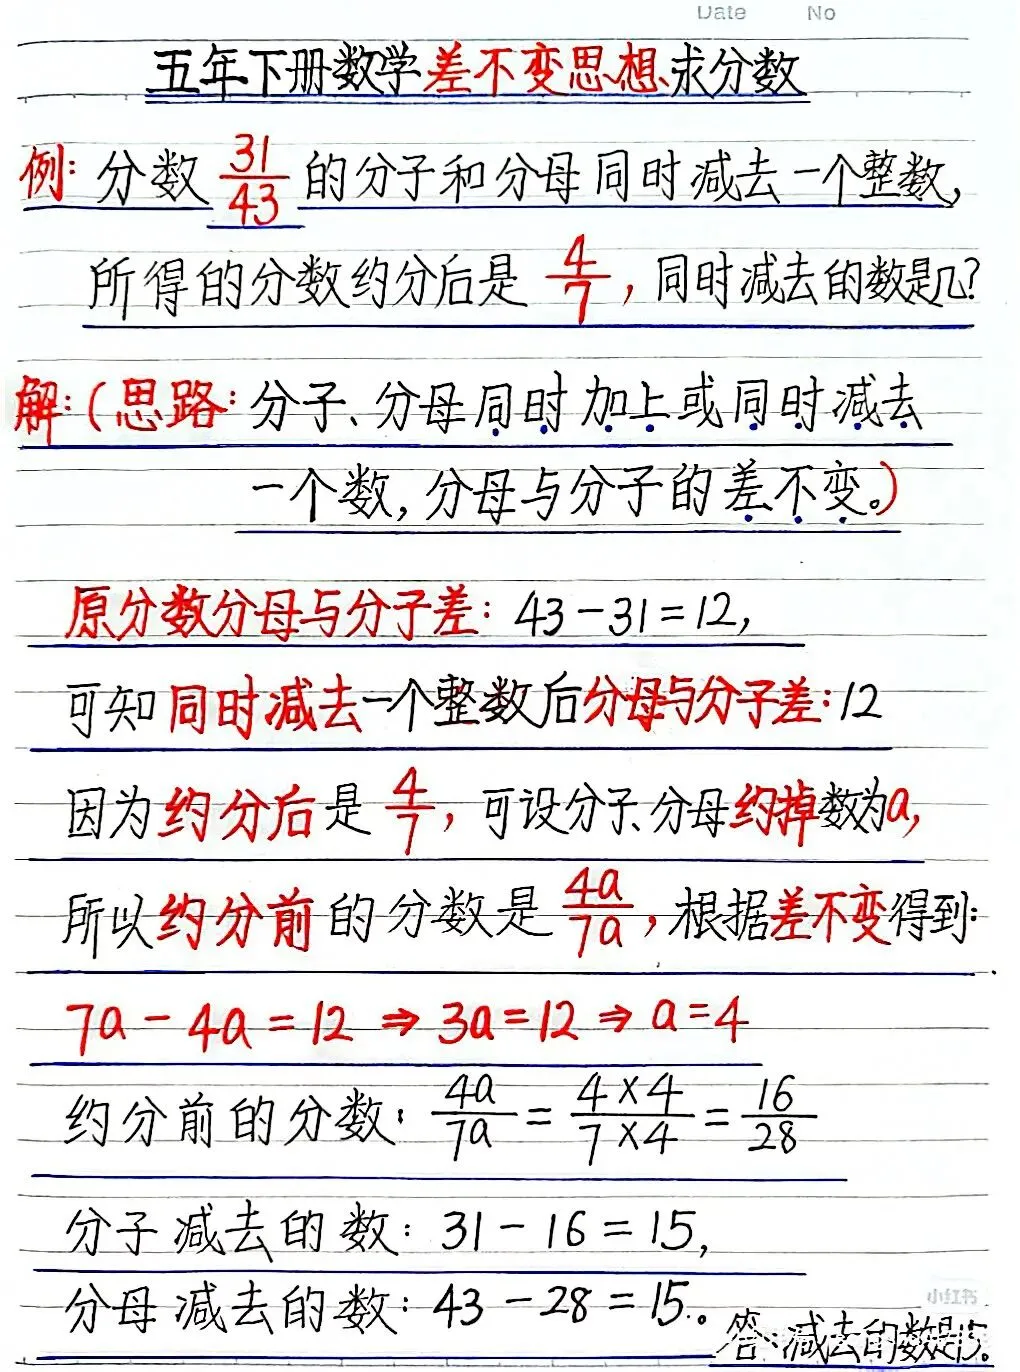 Date No
五年下册数学差不变思想求分数
例: 分数 31/43 的分子和分母同时减去一个整数,
所得的分数约分后是 4/7, 同时减去的数是几?
解: (思路: 分子、分母同时加上或同时减去
一个数, 分母与分子的差不变。)
原分数分母与分子差: 43-31=12,
可知同时减去一个整数后分母与分子差: 12
因为约分后是 4/7, 可设分子、分母约掉数为a,
所以约分前的分数是 4a/7a, 根据差不变得到:
7a-4a=12⇒3a=12⇒a=4
约分前的分数: 4a/7a = 4×4/7×4 = 16/28
分子减去的数: 31-16=15,
分母减去的数: 43-28=15。
小红书
答:减去的数是15。